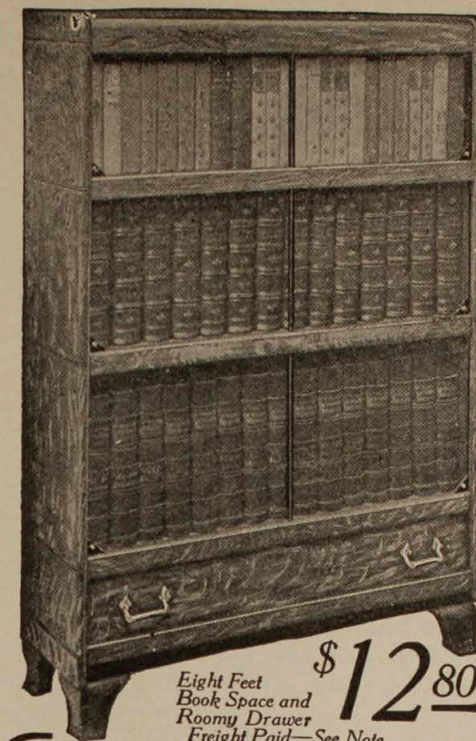 Eight Feet
Book Space and
Roomy Drawer
Freight Paid—See Note
$12 80